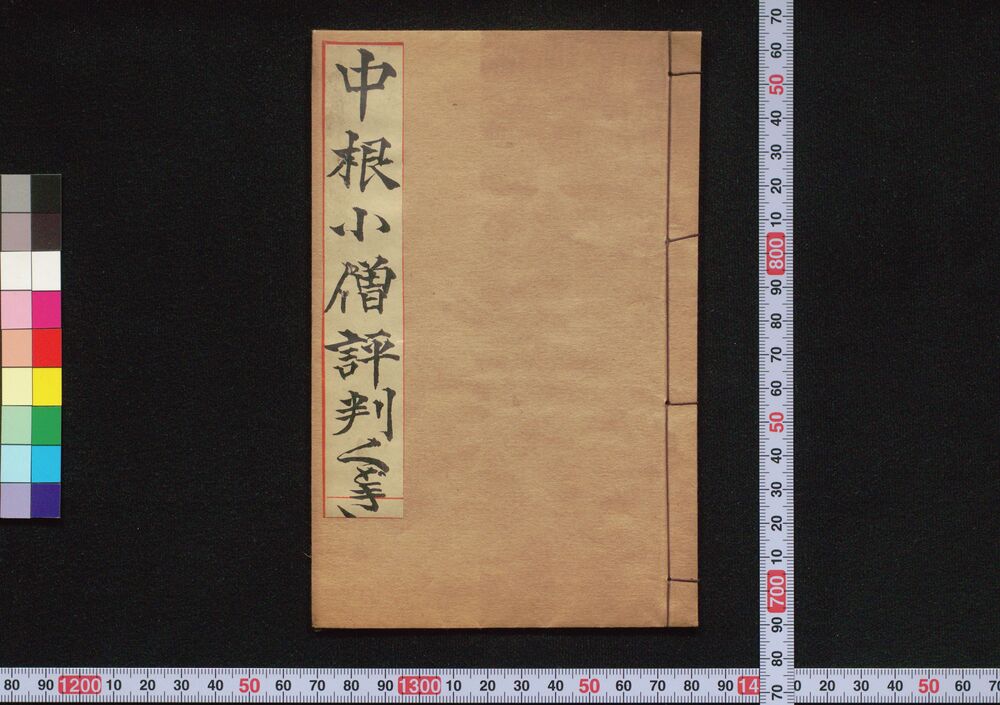 中根小僧評判くどき
70 60 50 40 30 20 10 800 90 80 70 60 50 40 30 20 10 700 90 80 70
80 90 1200 10 20 30 40 50 60 70 80 90 1300 10 20 30 40 50 60 70 80 90 14 0 20 30 40 50 60 70